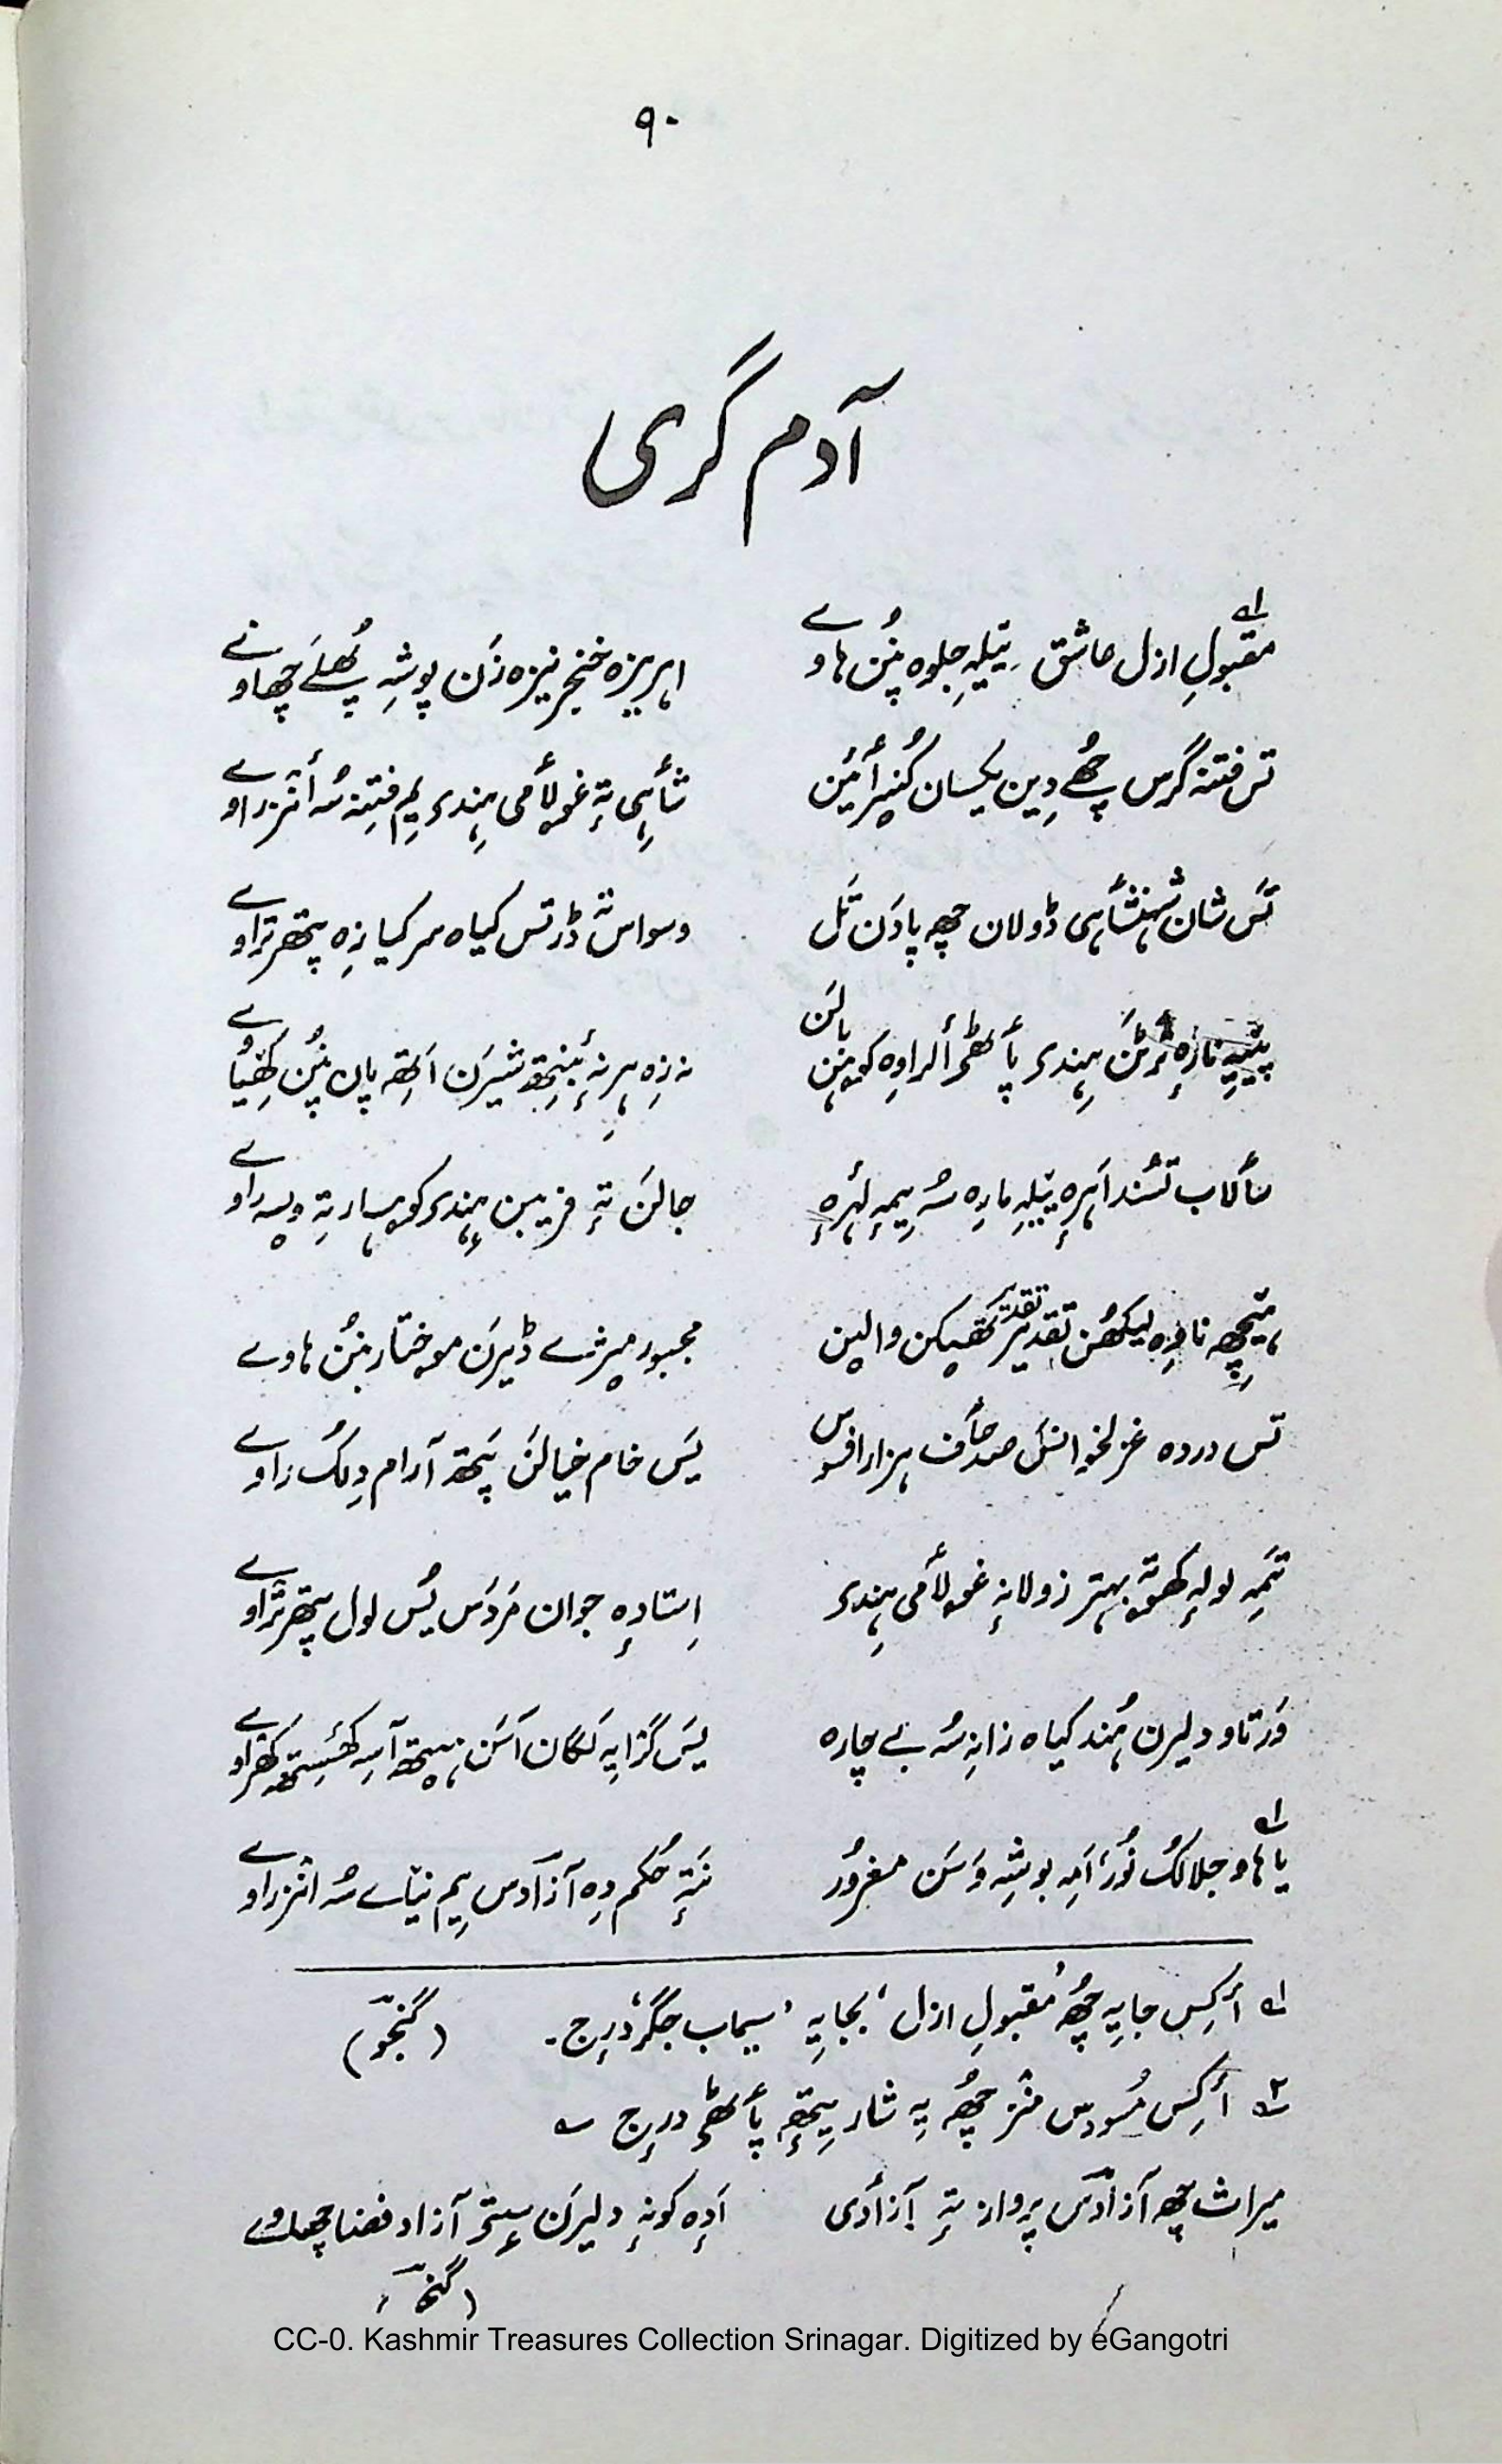 ۹۰
آدم گری
مقبولِ ازل عاشق ییٚلہِ جلوہ پنُن ہاوے ابریزہ خنجر نیزہ زَن پوشہِ پھُلَے چھاونے
تس فتنہ گرس چھُے دِین یکسان کُنیٖر أمیُن شأہی تہٕ غۄلأمی ہِندۍ یِم فِتنہ سُہ أنزراوے
تَس شان شہنشأہی ڈولان چھِ پادَن تَل وسواس تہٕ ڈر تس کیاہ سر کیازِہ پتھر تراوے
ہِندۍ پأٹھۍ الراوِہ کوہن بالَن نہ زِہ ہرنہٕ شیرَن اَتھِ پان پنُن کھیاوے
سألاب تسُند اَہرِہ ییٚلہِ مارِہ سُہ ییٚمہِ لہرِہ جالَن تہٕ فریبن ہِندۍ کوہسار تہِ وسہِ راوے
لیکھُن تقدیر والین مجبور ڈیرَن مۄختار بنُن ہاوے
تس دردہ غزلخوانَس صد حأف ہزار افسوس یَس خام خیالَن پؠٹھ آرام دِلُک راوے
تَمہِ لولہِ کھۄتہٕ بہتر زولانہٕ غۄلأمی ہِندۍ اِستادٕہ جوان مَردَس یُس لول پتھر تراوے
وَرتاو دلیرن ہُند کیاہ زانہِ سُہ بے چارہ یَس گزایہِ لَگان اَسَن آسہِ
یا ہاو جلالُک نُور اَمہِ بوشہِ وَسَن مغرُور نَتہٕ حُکم دِہ آزادس یِم نیٚاے سُہ انزراوے
۱؎ أکِس جایہِ چھُ ’مقبولِ ازل‘ بجایہِ ’سیماب جگر‘ دٔرِج۔ (گنجوٗ)
۲؎ أکِس مُسودس منٛز چھُہ یہِ شار یتھٕ پأٹھۍ دٔرِج ؎
میراث چھِ آزادَس پرواز تہٕ آزأدی اَدِہ کونہٕ دلیرَن سیٖتۍ آزاد فضا چھاوے
CC-0. Kashmir Treasures Collection Srinagar. Digitized by eGangotri